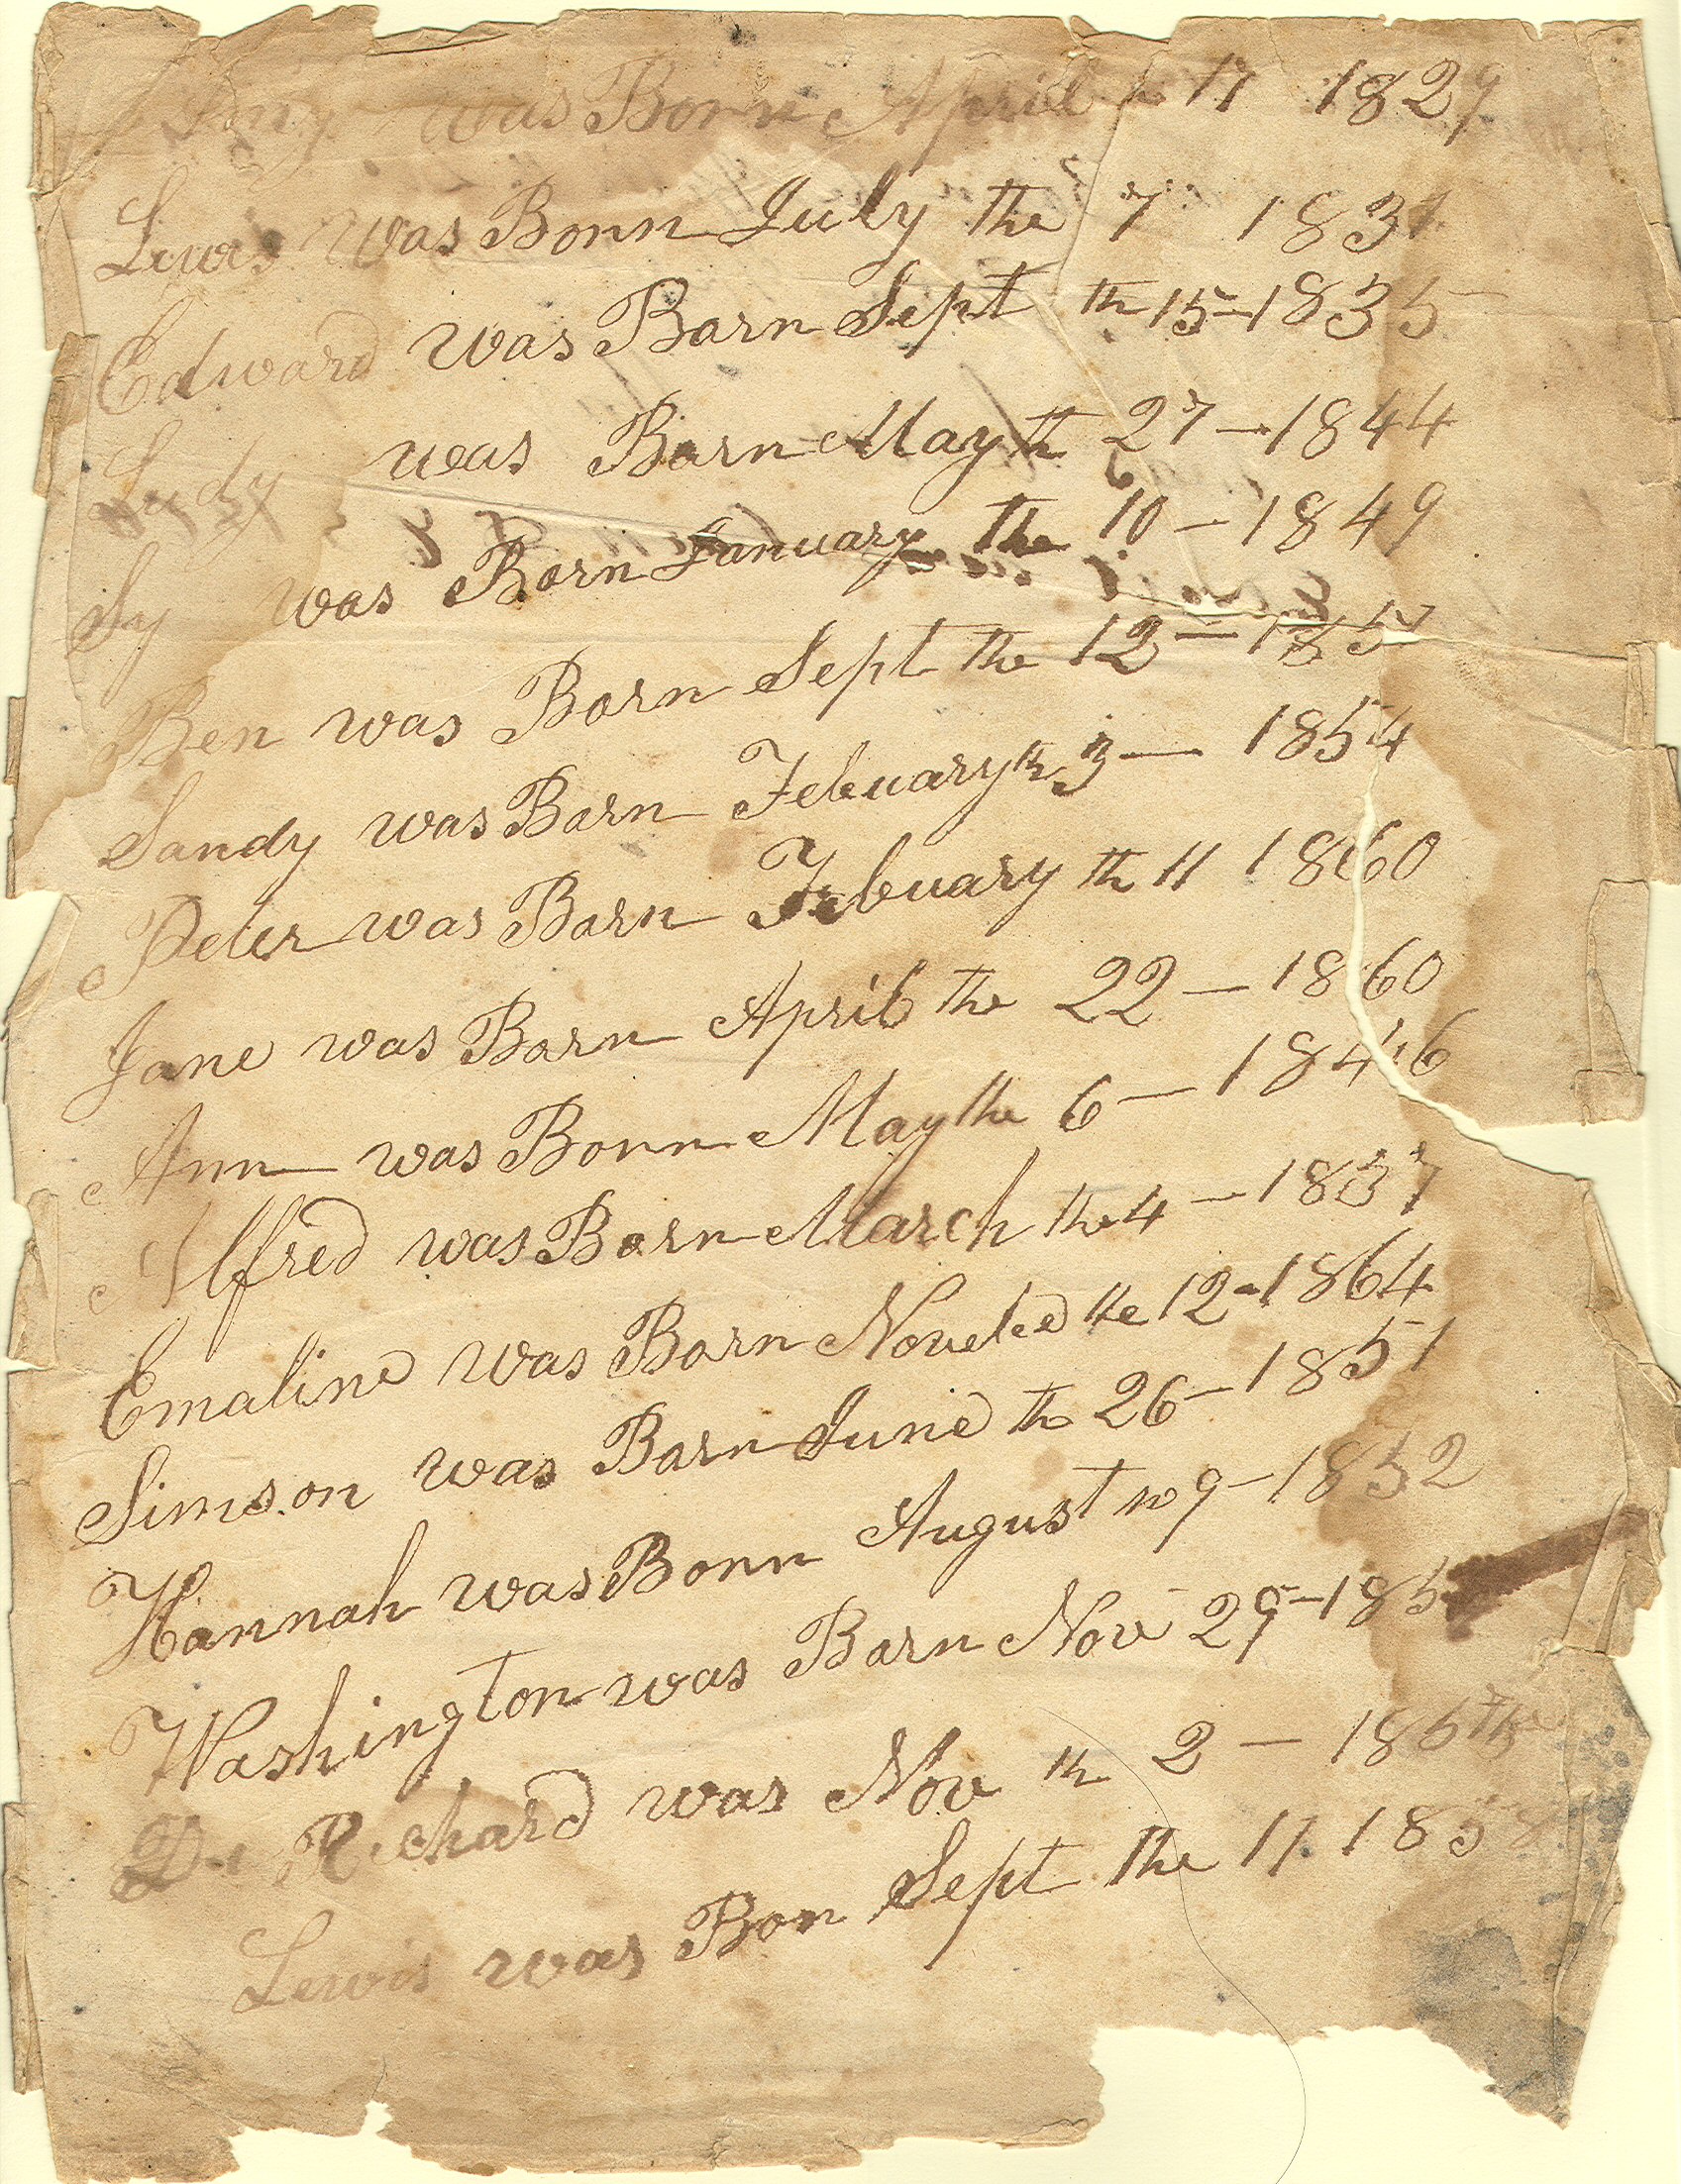 was Born April th 11 1829
Lewis was Bonn July the 7 1831
Edward was Barn Sept th 15 - 1835
Judy was Barn May th 27 - 1844
Sy was Born January the 10 - 1849
Ben was Born Sept the 12 - 185
Sandy was Barn Febuary th 3 - 1854
Peter was Barn Febuary th 11 1860
Jane was Barn April the 22 - 1860
Ann was Bonn May the 6 - 1846
Alfred was Barn March the 4 - 1837
Emaline was Barn the 12 - 1864
Simson was Barn June th 26 - 1851
Hannah was Bonn August 9 - 1852
Washington was Barn Nov 29 - 185
Richard was Nov th 2 -
Lewis was Bon Sept the 11. 1858